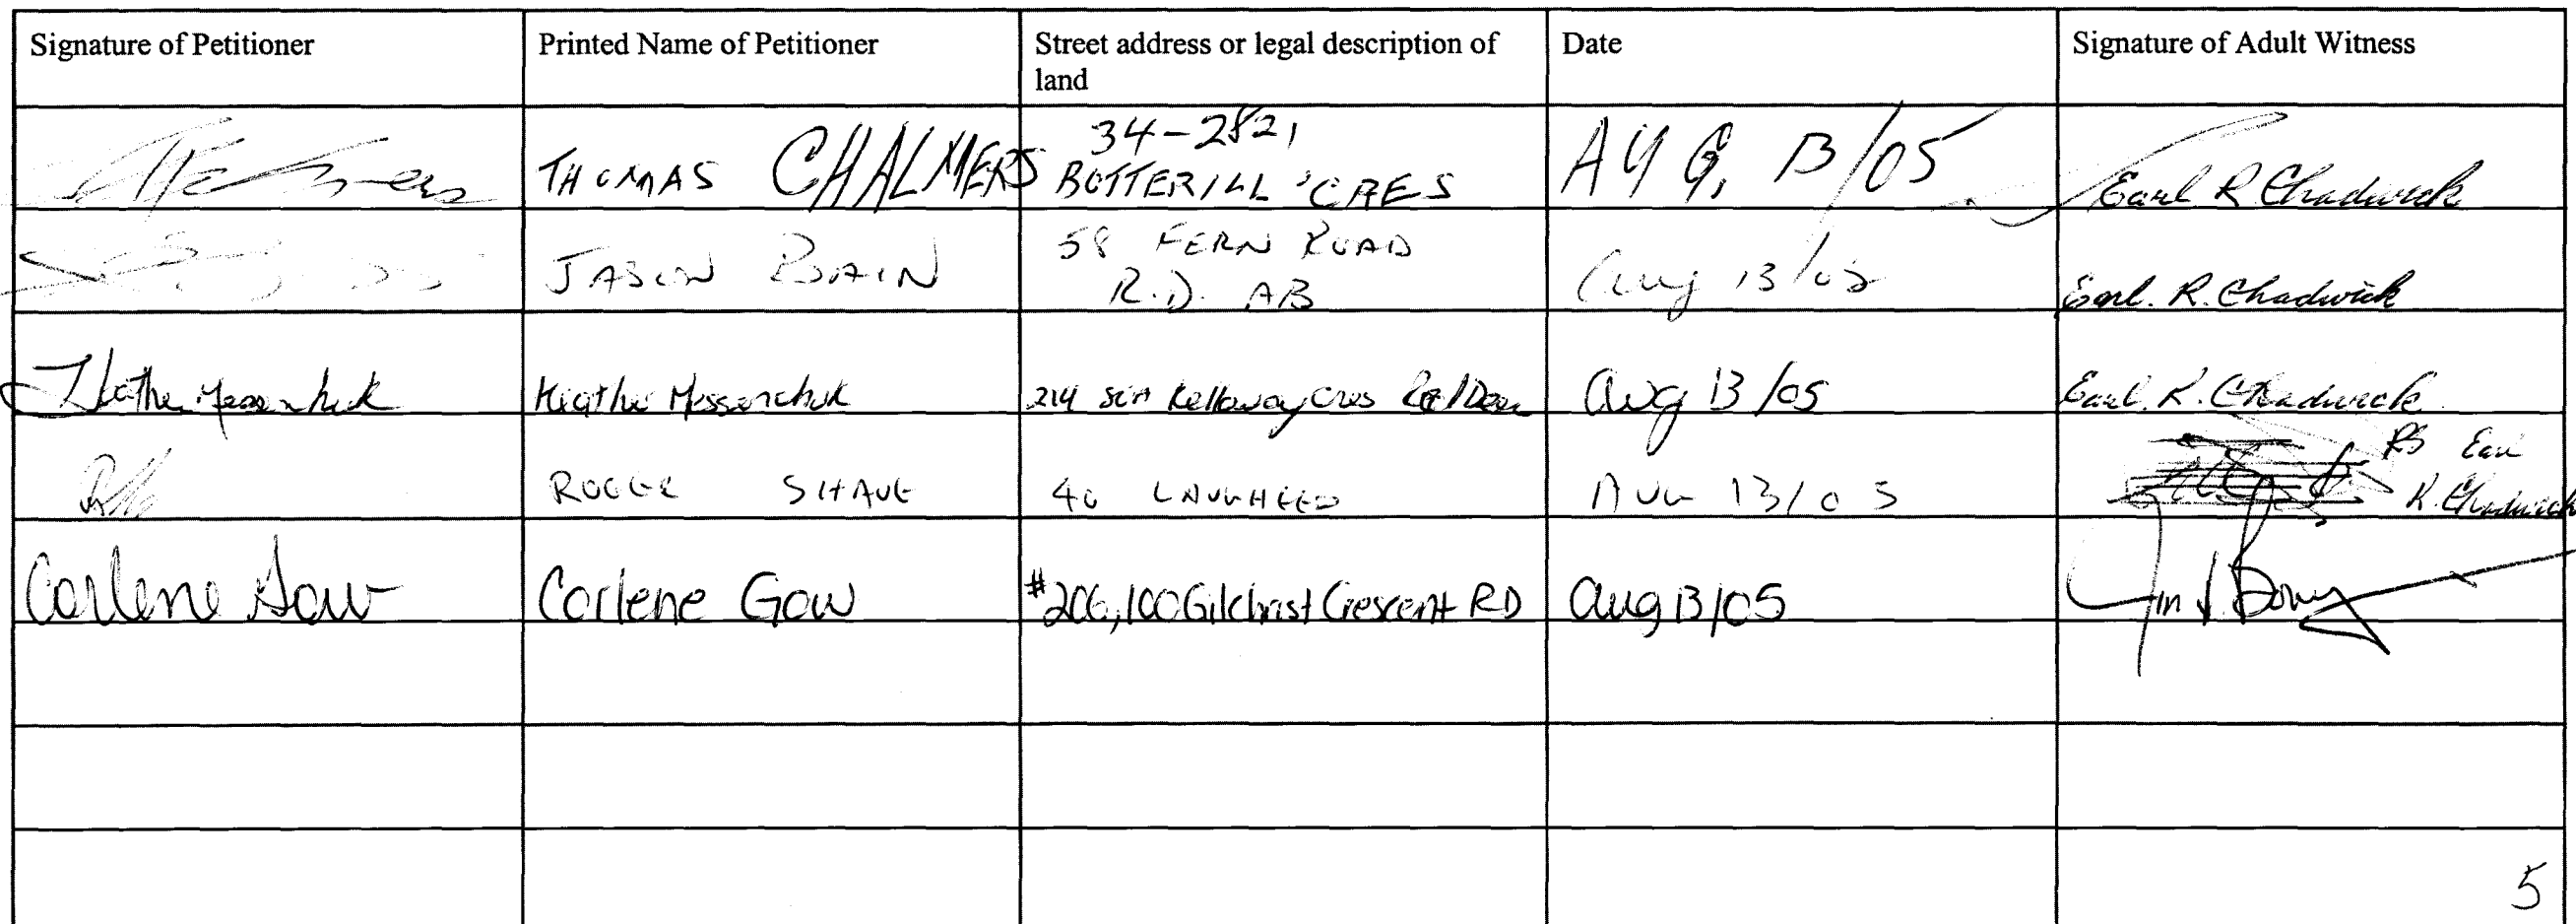 Signature of Petitioner
Printed Name of Petitioner
Street address or legal description of
land
Date
Signature of Adult Witness
THOMAS CHALMERS
34-2821
BOTTERILL CRES
AUG, 13/05
Earl R Chadwick
JASON BAIN
58 FERN ROAD
R.D. AB
Aug 13/05
Earl. R. Chadwick
Heather Messenchuk
Heather Messenchuk
214 Kelloway Cres Red Deer
Aug 13/05
Earl. R. Chadwick
ROGER SHAVE
40 LOUGHEED
AUG 13/05
RS Earl
R. Chadwick
Carlene Gow
Carlene Gow
#206, 100 Gilchrist Crescent RD
Aug 13/05
5